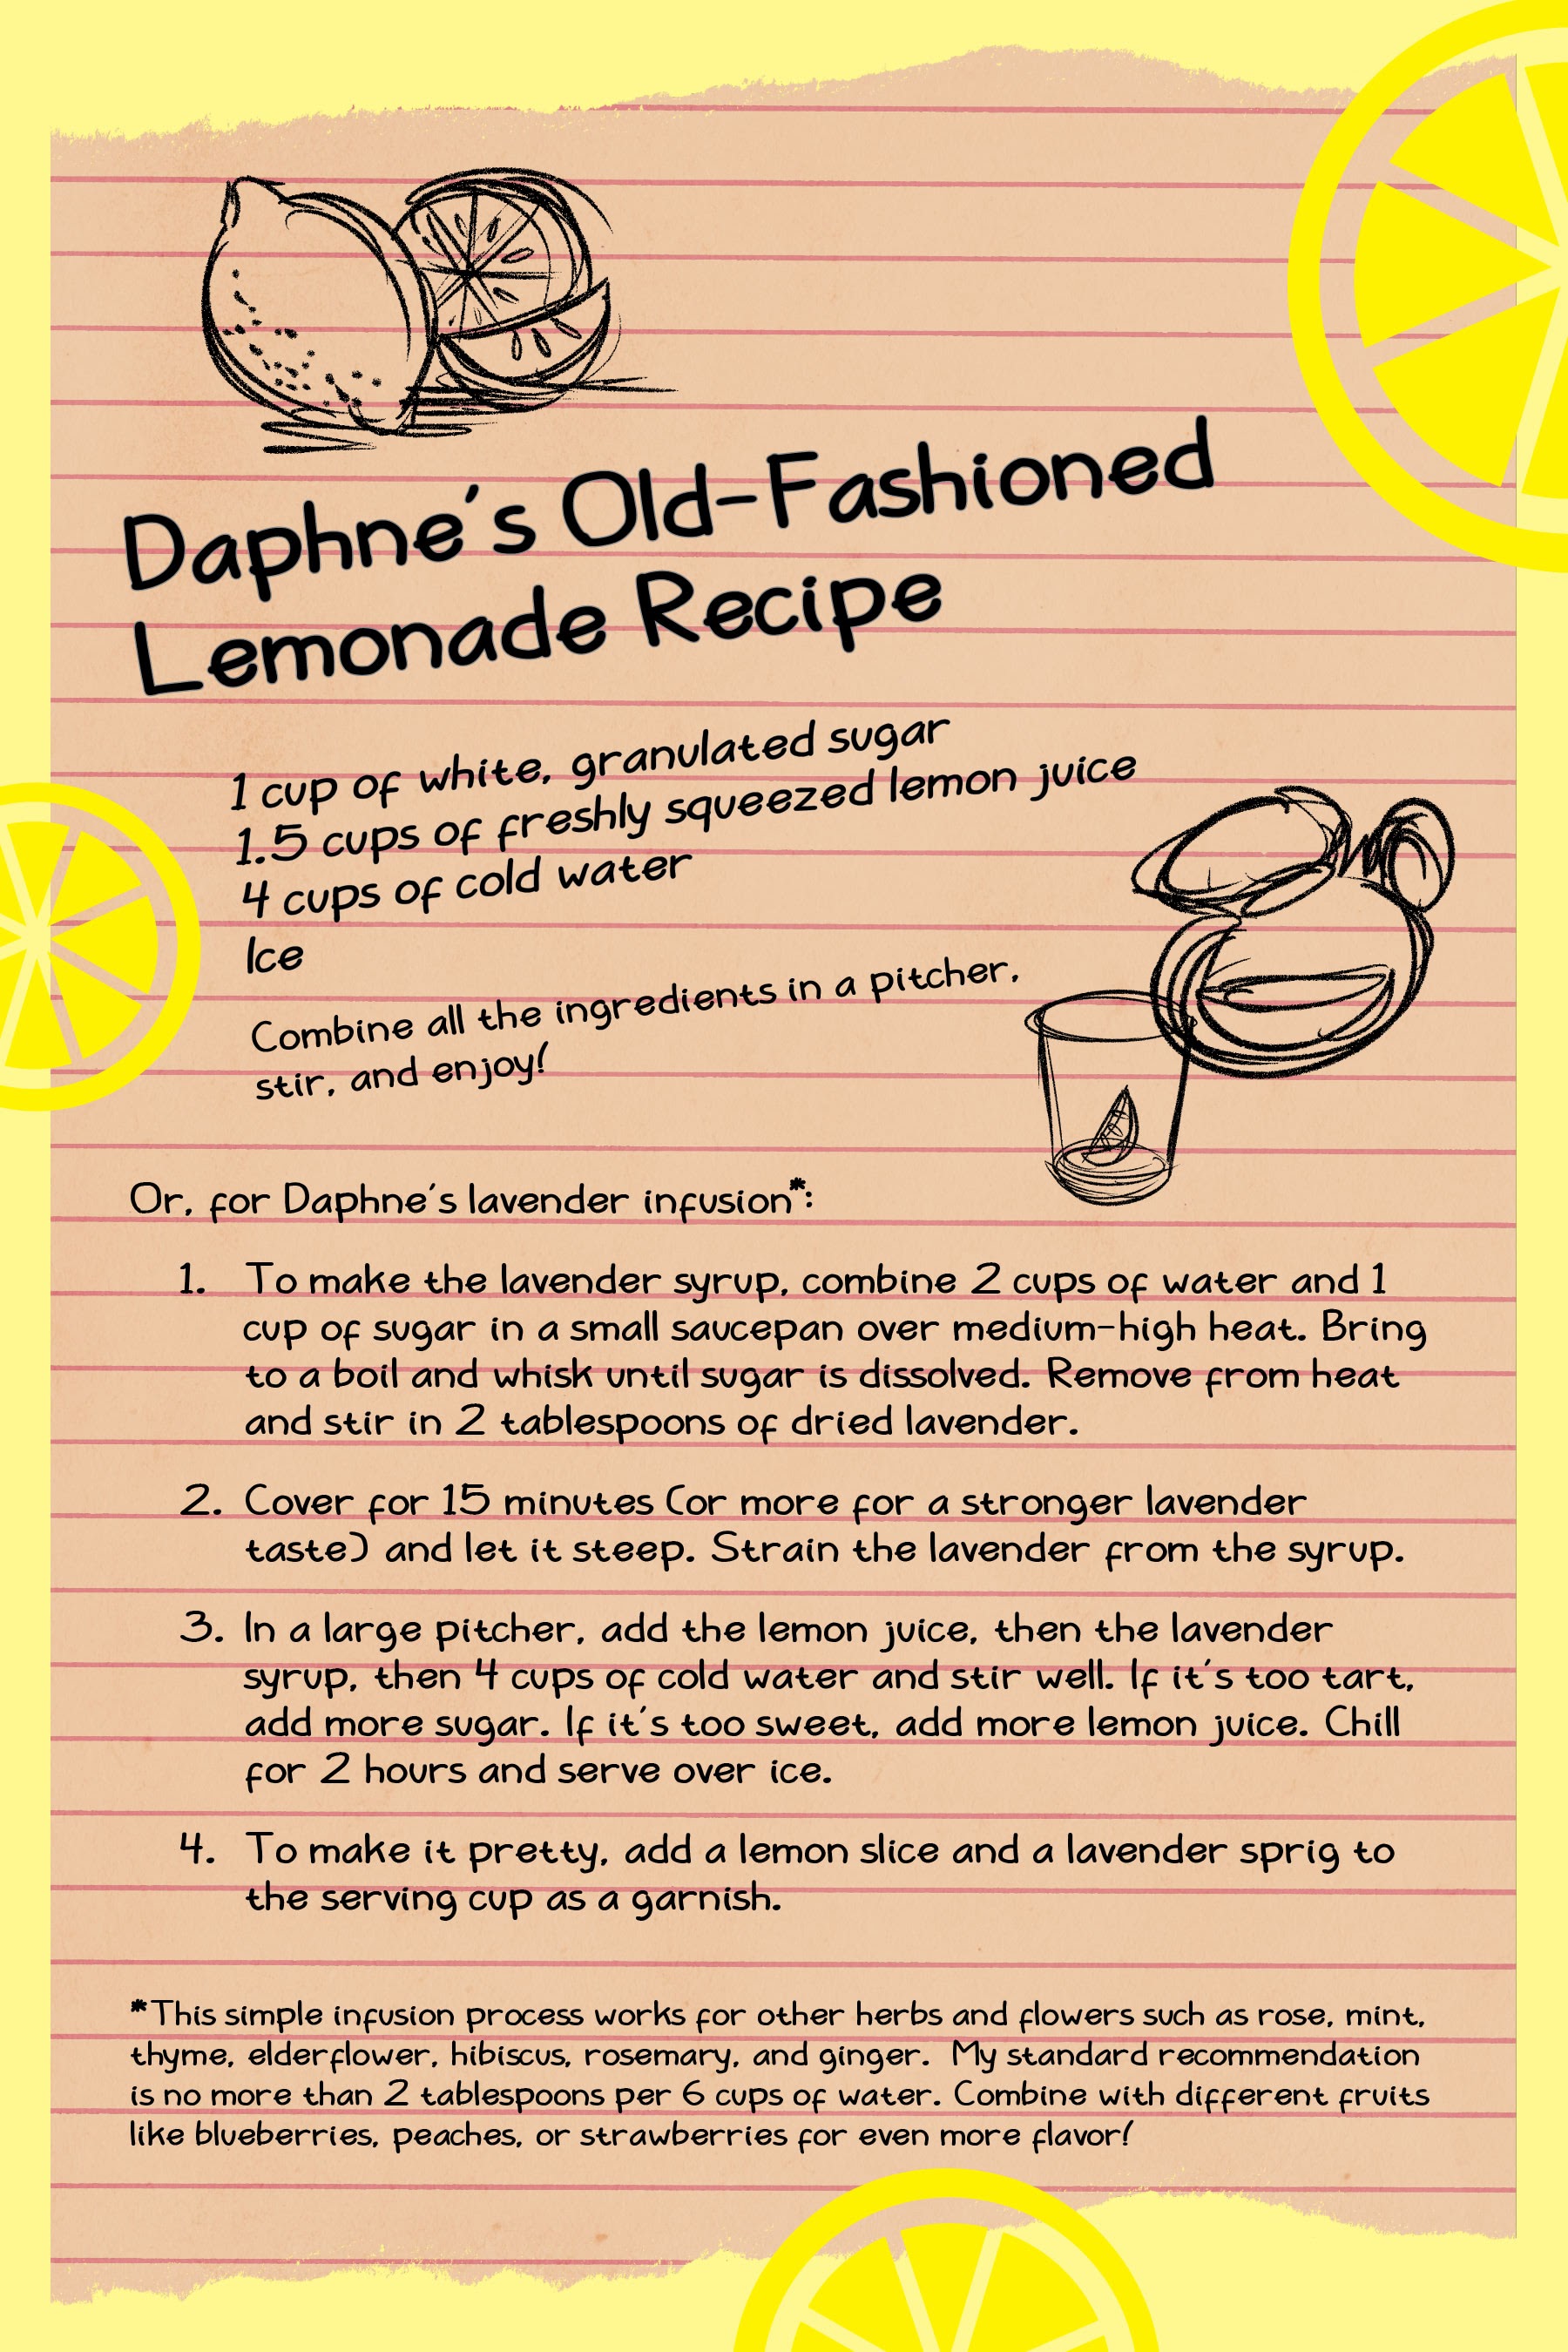 Daphne's Old-Fashioned
Lemonade Recipe
1 cup of white, granulated sugar
1.5 cups of freshly squeezed lemon juice
4 cups of cold water
Ice
Combine all the ingredients in a pitcher,
stir, and enjoy!
Or, for Daphne's lavender infusion*:
1. To make the lavender syrup, combine 2 cups of water and 1
cup of sugar in a small saucepan over medium-high heat. Bring
to a boil and whisk until sugar is dissolved. Remove from heat
and stir in 2 tablespoons of dried lavender.
2. Cover for 15 minutes (or more for a stronger lavender
taste) and let it steep. Strain the lavender from the syrup.
3. In a large pitcher, add the lemon juice, then the lavender
syrup, then 4 cups of cold water and stir well. If it's too tart,
add more sugar. If it's too sweet, add more lemon juice. Chill
for 2 hours and serve over ice.
4. To make it pretty, add a lemon slice and a lavender sprig to
the serving cup as a garnish.
*This simple infusion process works for other herbs and flowers such as rose, mint,
thyme, elderflower, hibiscus, rosemary, and ginger. My standard recommendation
is no more than 2 tablespoons per 6 cups of water. Combine with different fruits
like blueberries, peaches, or strawberries for even more flavor!